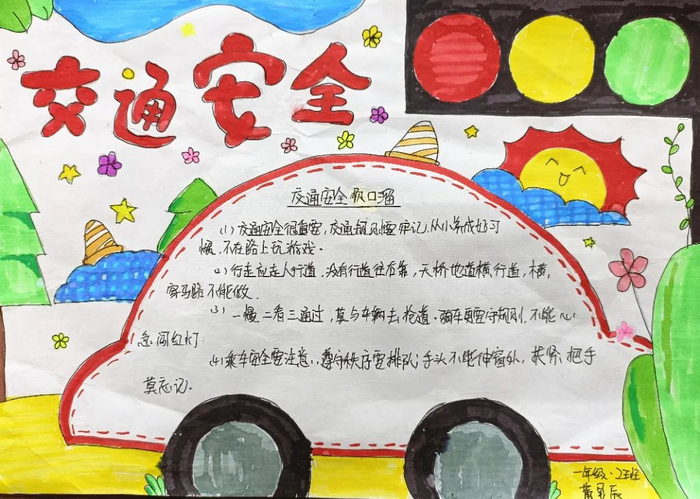 交通安全
交通安全顺口溜
(1) 交通安全很重要,交通规则要牢记,从小养成好习
惯,不在路上玩游戏。
(2) 行走应走人行道,没有行道往右靠,天桥地道横行道,横
穿马路不能做.
(3) 一慢二看三通过,莫与车辆去抢道。骑车更要守规则,不能心
急闯红灯
(4) 乘车安全要注意,遵守秩序要排队;手头不能伸窗外,扶紧把手
莫忘记.
一年级·2班